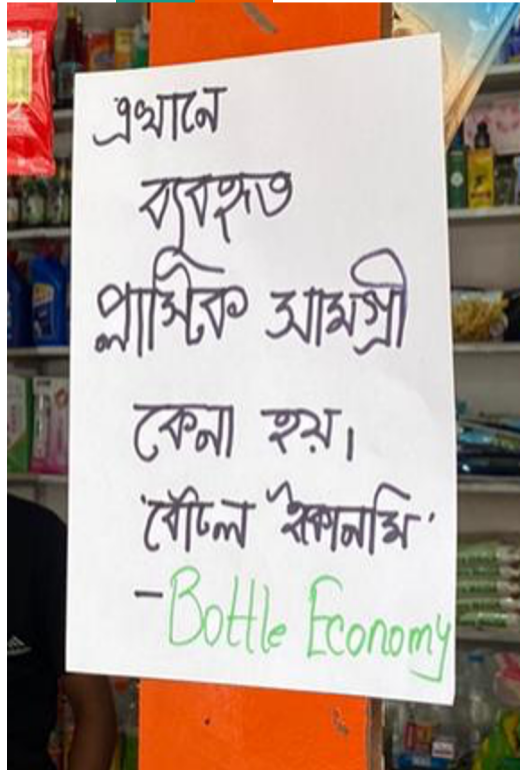 এখানে
ব্যবহৃত
প্লাস্টিক সামগ্রী
কেনা হয়।
'বোটল ইকোনমি'
- Bottle Economy